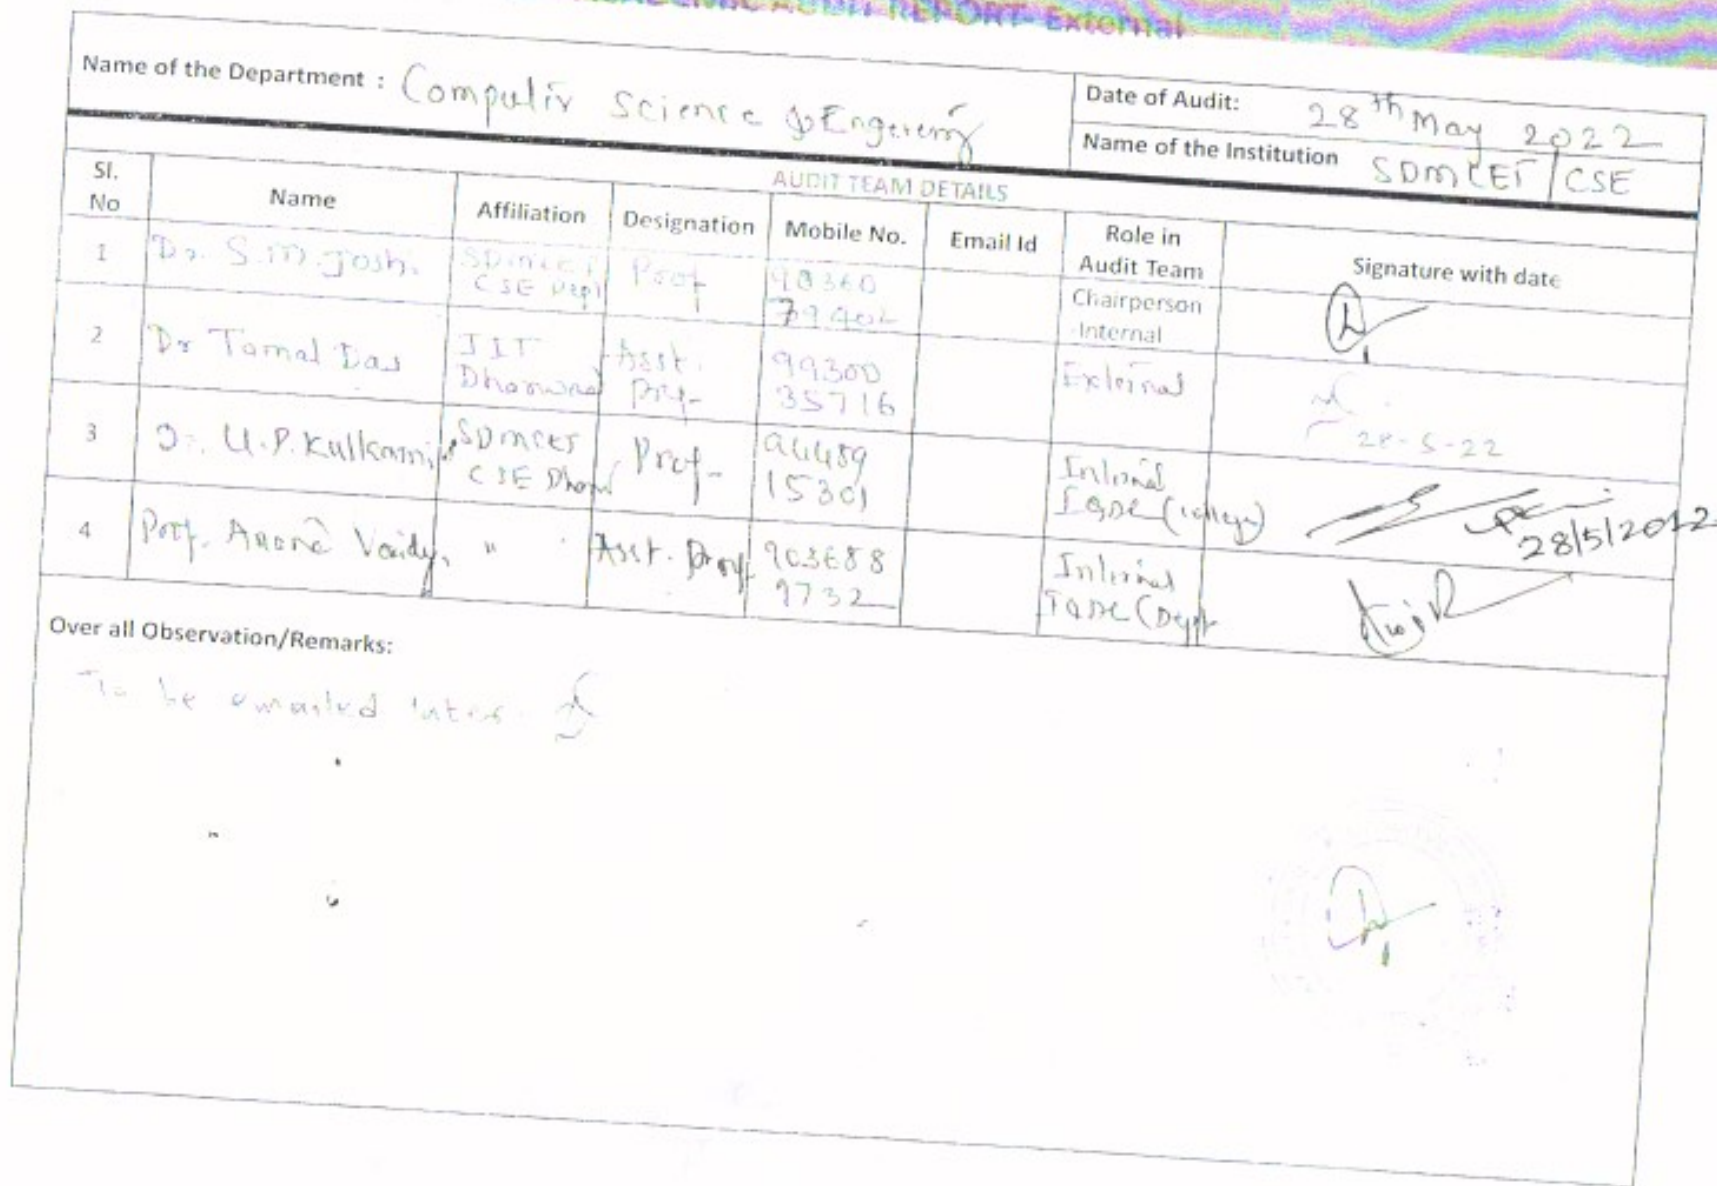 ACADEMIC AUDIT REPORT- External
Name of the Department : Computer Science & Engineering
Date of Audit: 28th May 2022
Name of the Institution SDMCET / CSE
AUDIT TEAM DETAILS
Sl. No Name Affiliation Designation Mobile No. Email Id Role in Audit Team Signature with date
1 Dr. S.M. Joshi SDMCET CSE Dept Prof Chairperson Internal
2 Dr Tamal Das IIT Dharwad Asst. Prof- 99300 35716 External 28-5-22
3 Dr. U.P. Kulkarni SDMCET CSE Prof- 94489 15301 Internal (college) 28/5/2022
4 Prof. Vaidya " Asst. Prof 903688 9732 Internal (Dept
Over all Observation/Remarks:
To be emailed later